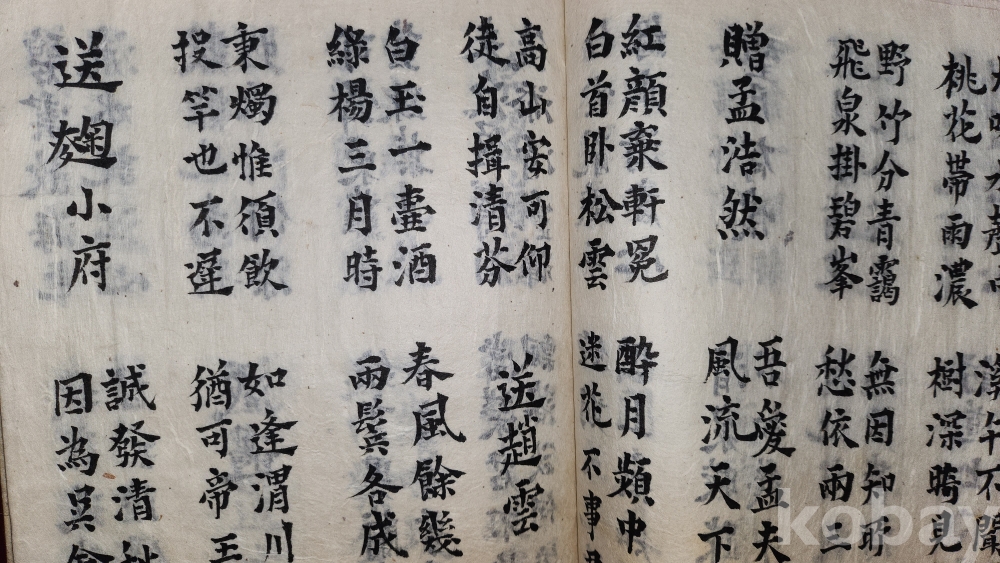 桃花帶雨濃
溪午不聞
樹深時見
野竹分青靄
飛泉掛碧峯
無因知所
愁依兩三
贈孟浩然
吾愛孟夫
風流天下
紅顔棄軒冕
白首卧松雲
醉月頻中
迷花不事
高山安可仰
徒自揖清芬
送趙雲
白玉一壷酒
綠楊三月時
春風餘幾
兩鬂各成
秉燭惟須飲
投竿也不遲
如逢渭川
猶可帝王
送麹小府
誠發清
因為吳
kobay